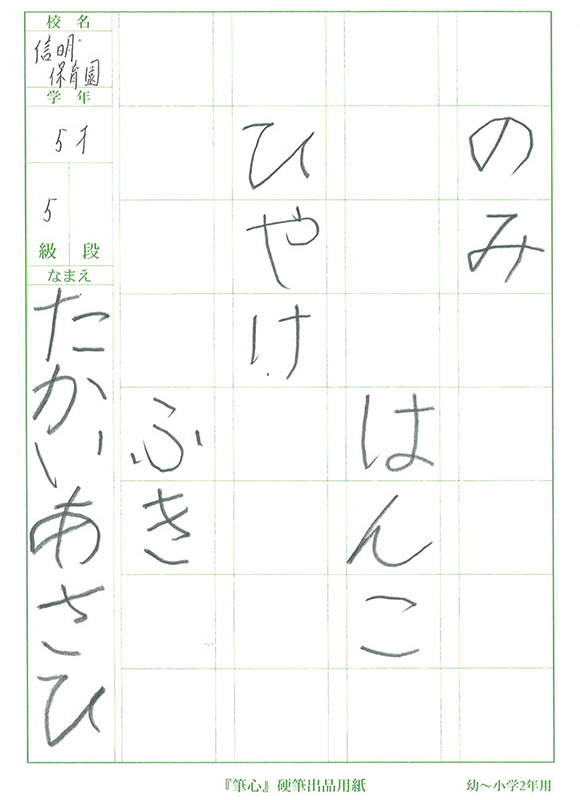 のみ
はんこ
ひやけ
ふき
校名
信明
保育園
学年
5才
5
級 段
なまえ
たかいあさひ
『筆心』硬筆出品用紙
幼～小学2年用